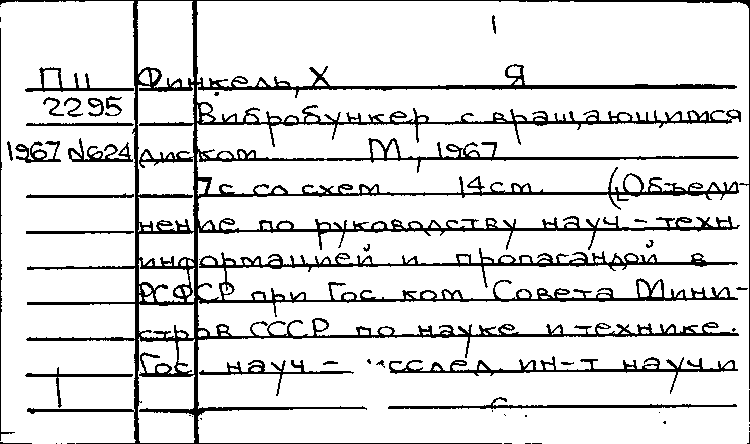 П11 Финкель, Х Я
2295 Вибробункер с вращающимся
1967 №624 диском М., 1967
7 с со схем 14 cm ([Объеди-
нение по руководству науч-техн
информацией и пропагандой в
РСФСР при Гос. ком Совета Мини-
стров СССР по науке и технике.
Гос. науч- исслед. ин-т науч и